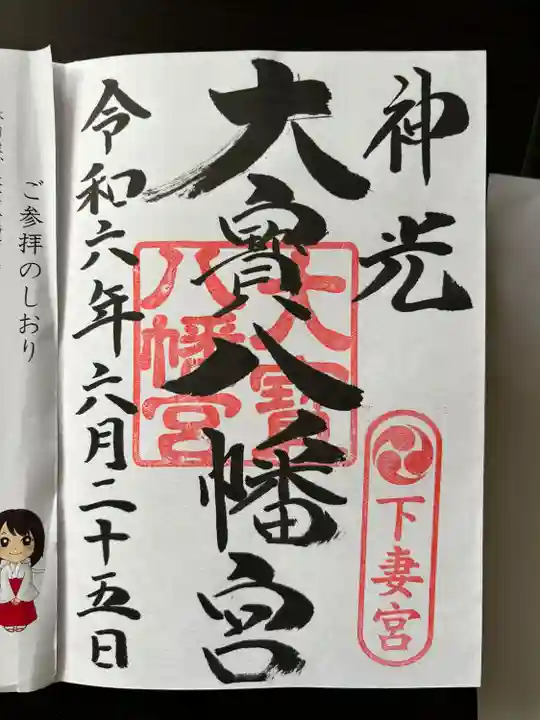 神光
大寶八幡宮
令和六年六月二十五日
大寶
八幡宮
下妻宮
ご参拝のしおり